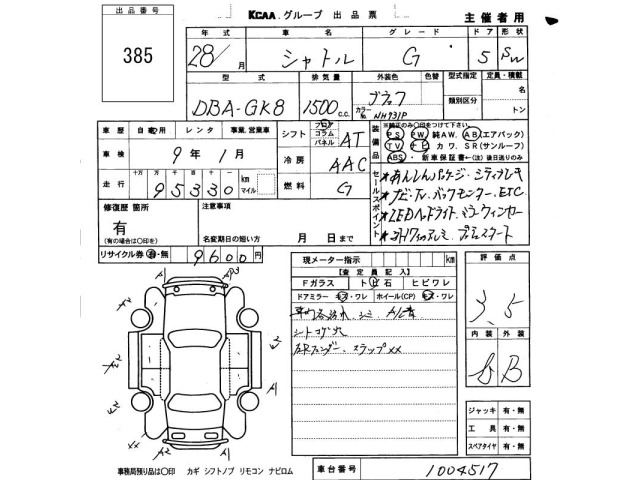 出品番号
385
KCAA グループ 出品票
主催者用
年式 車名 グレード ドア 形状
28/ 月 シャトル G 5 SW
型式 排気量 外装色 色替 型式指定 定員・積載
DBA-GK8 1500 c.c. ブラック カラーNo. NH731P 類別区分 名 トン
車歴 自家用 レンタ 事業、営業車
シフト フロア コラム パネル AT
装備品 ※純正のみ〇印をつけて下さい。
PS PW 純AW. AB(エアバック)
TV ナビ カワ. SR(サンルーフ)
ABS ・新車保証書←(注)後日送りのみ
車検 9年 1月
冷房 AAC
走行 十万 万 千 百 十 km マイル
95330
燃料 G
セールスポイント
*あんしんパッケージ・シティブレーキ
*ナビ・TV・バックモニター・ETC
*LEDヘッドライト・
修復歴 箇所
有
(有の場合は〇印を)
注意事項
名変期日の短い方 月 日まで
リサイクル券 有・無 9600円
現メーター指示 km
【査定員記入】
Fガラス トビ石 ヒビワレ
ドアミラー キズ・ワレ ホイール(CP) キズ・ワレ
シートコゲ穴
評価点
3.5
内装 外装
B
ジャッキ 有・無
工具 有・無
スペアタイヤ 有・無
A2
A
事務局預り品は〇印 カギ シフトノブ リモコン ナビロム
車台番号 1004517